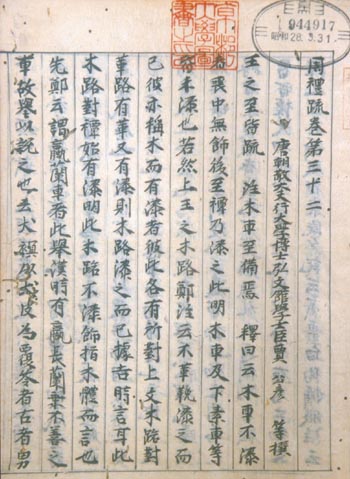 944917
昭和28.3.31
周禮疏卷第三十二
唐朝散大夫行大學博士弘文館學士臣賈公彦等撰
王之至皆疏 注木車至備焉 釋曰云木車不漆
者喪中無飾後至禫乃漆之此明木車及下素車等
皆未漆也若然上王之木路鄭注云不革鞔漆之而
已彼亦稱木而有漆者彼此各有所對上文木路對
革路有革又有漆則木路漆之而已據吉時言耳此
木路對禫始有漆明此木路不漆飾指木體而言也
先鄭云謂羸蘭車者此舉漢時有羸長蘭車不善之
車故舉以説之也云犬 以犬皮為覆笭者古者男